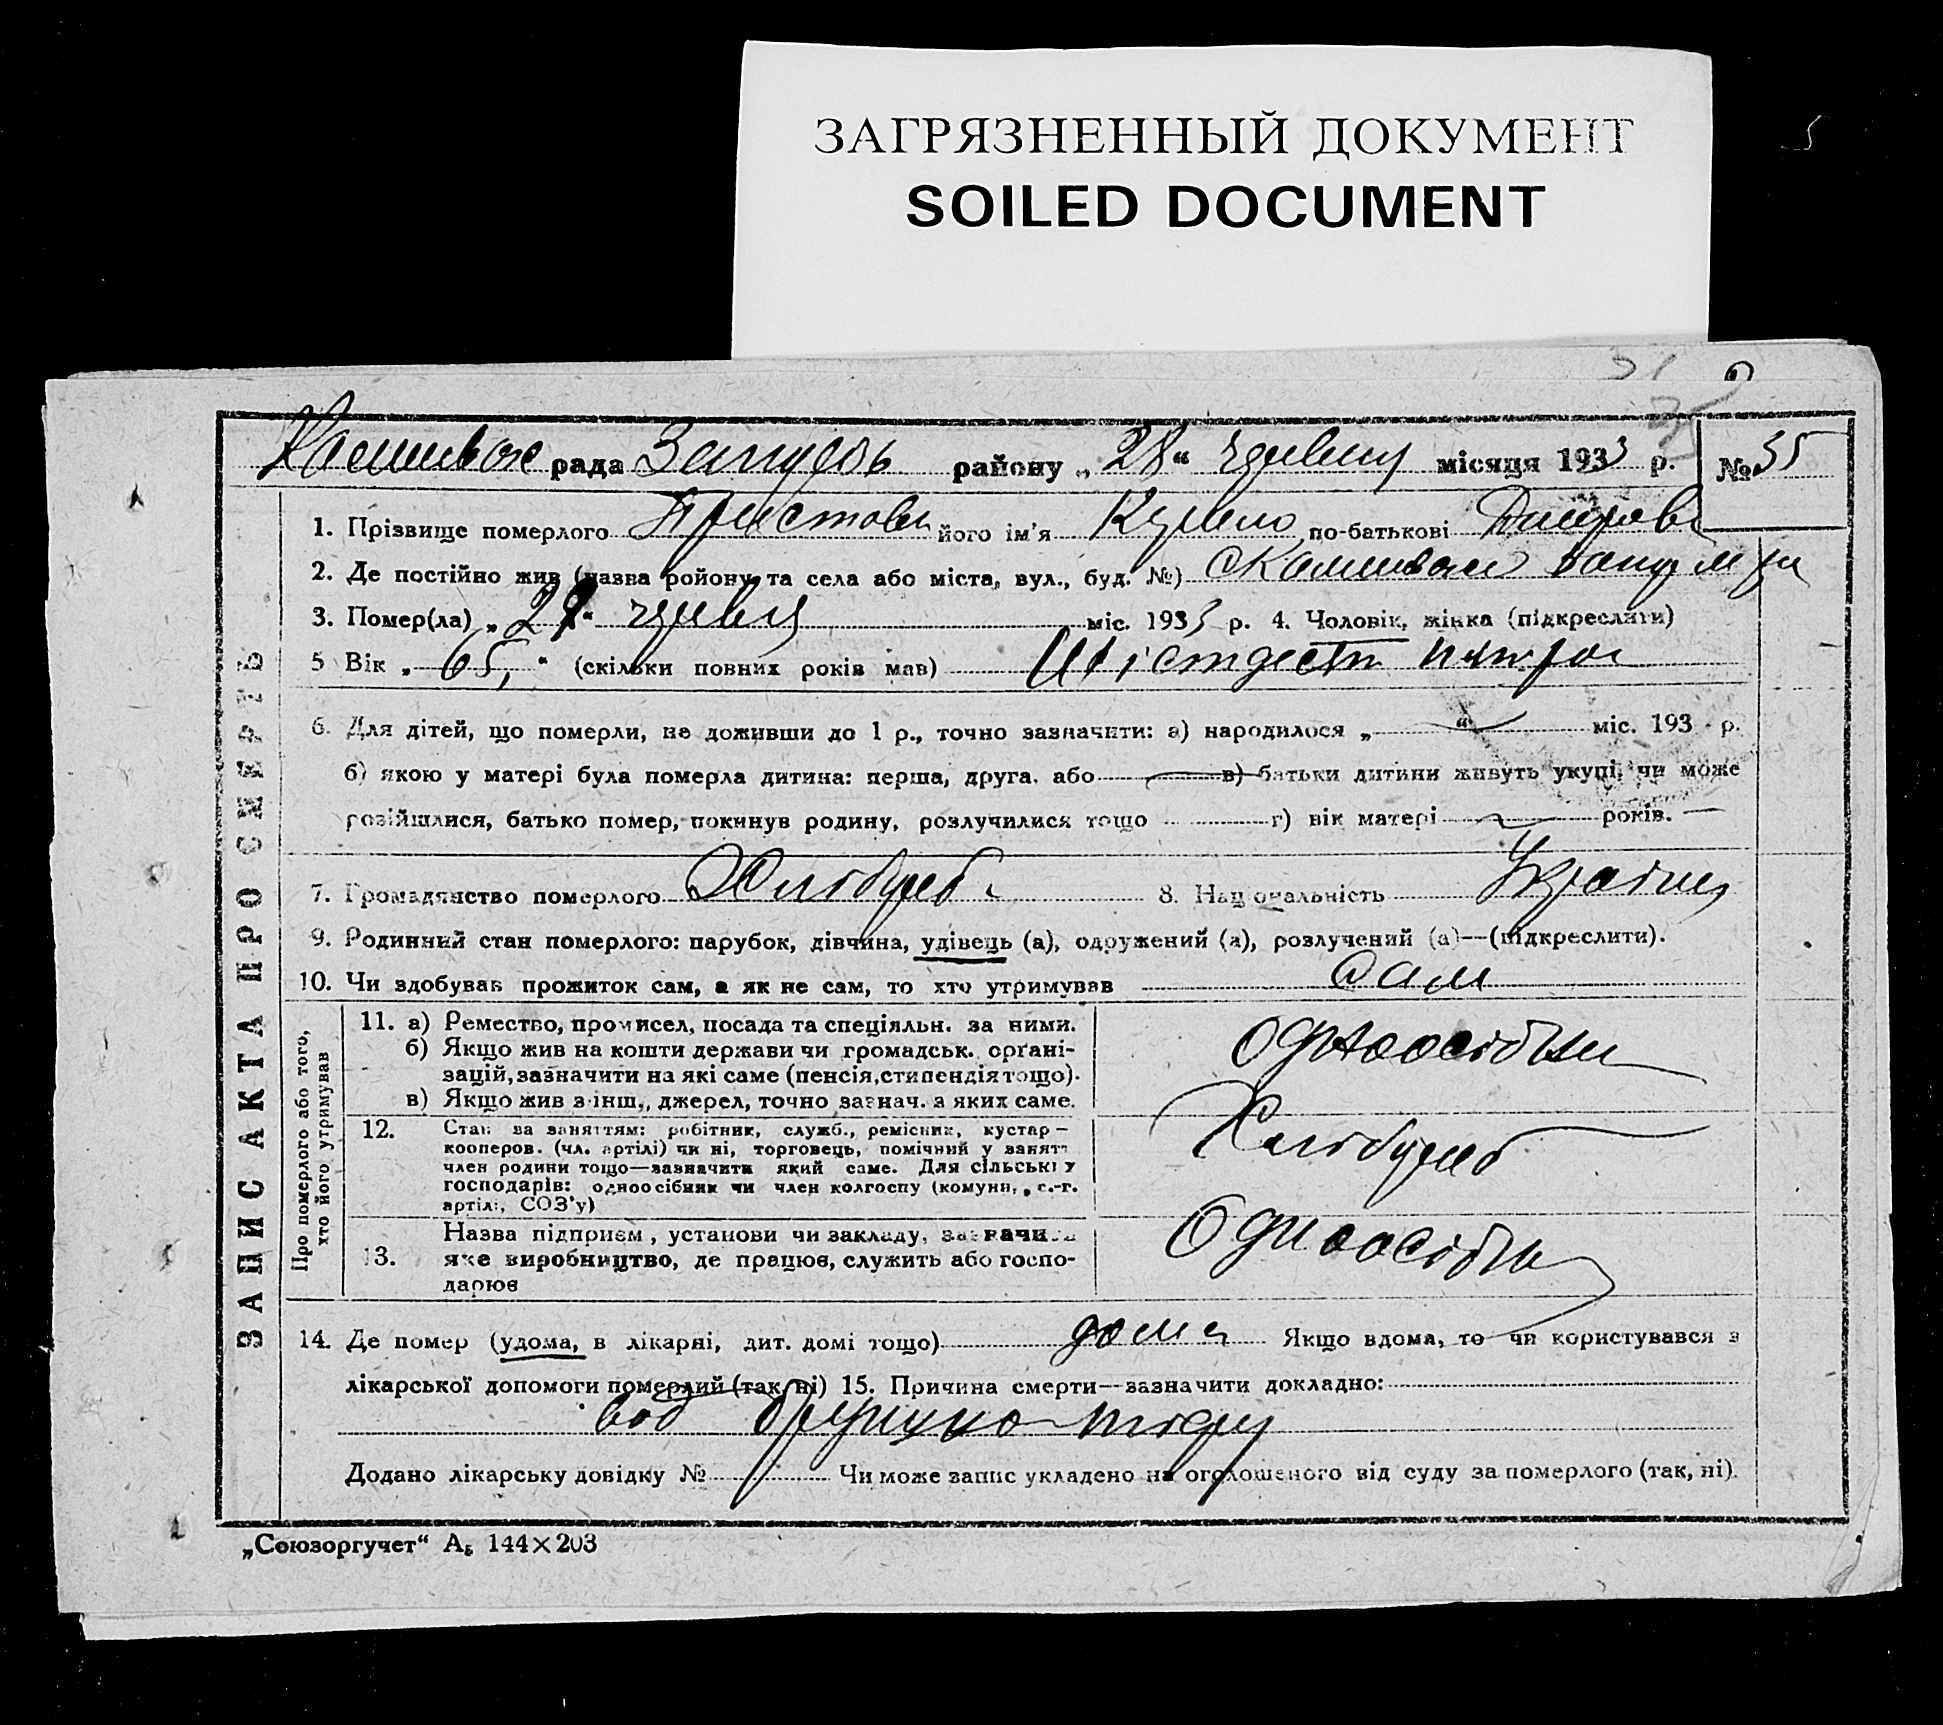 ЗАГРЯЗНЕННЫЙ ДОКУМЕНТ
SOILED DOCUMENT
рада района „28“ місяця 1933 р. № 35
1. Прізвище померлого його ім'я Кирило по-батькові
2. Де постійно жив (назва району та села або міста, вул., буд. №)
3. Помер(ла) „ “ міс. 1933 р. 4. Чоловік, жінка (підкреслити)
5 Вік „65“ (скільки повних років мав) Шістдесят пять
6. Для дітей, що померли, не доживши до 1 р., точно зазначити: а) народилося „ “ міс. 193 р.
б) якою у матері була померла дитина: перша, друга, або в) батьки дитини живуть укупі, чи може
розійшлися, батько помер, покинув родину, розлучилися тощо г) вік матері років.
7. Громадянство померлого Хлібороб 8. Національність Українец
9. Родинний стан померлого: парубок, дівчина, удівець (а), одружений (а), розлучений (а)—(підкреслити).
10. Чи здобував прожиток сам, а як не сам, то хто утримував Сам
ЗАПИС АКТА ПРО СМЕРТЬ
Про померлого або того, хто його утримував
11. а) Ремество, промисел, посада та спеціяльн. за ними.
б) Якщо жив на кошти держави чи громадськ. органі-
зацій, зазначити на які саме (пенсія, стипендія тощо).
в) Якщо жив з інш., джерел, точно зазнач. з яких саме.
Одноосібник
12. Стан за заняттям: робітник, служб., ремісник, кустар—
кооперов. (чл. артілі) чи ні, торговець, помічний у занятт
член родини тощо—зазначити який саме. Для сільськ
господарів: одноосібник чи член колгоспу (комуни, с.-г.
артілі, СОЗ'у)
Хлібороб
13. Назва підприєм, установи чи закладу, зазначи
яке виробництво, де працює, служить або госпо-
дарює
Одноосібн
14. Де помер (удома, в лікарні, дит. домі тощо) дома Якщо вдома, то чи користувався з
лікарської допомоги померлий (так, ні) 15. Причина смерти—зазначити докладно:
Додано лікарську довідку № Чи може запис укладено на оголошеного від суду за померлого (так, ні).
„Союзоргучет“ А₅ 144×203